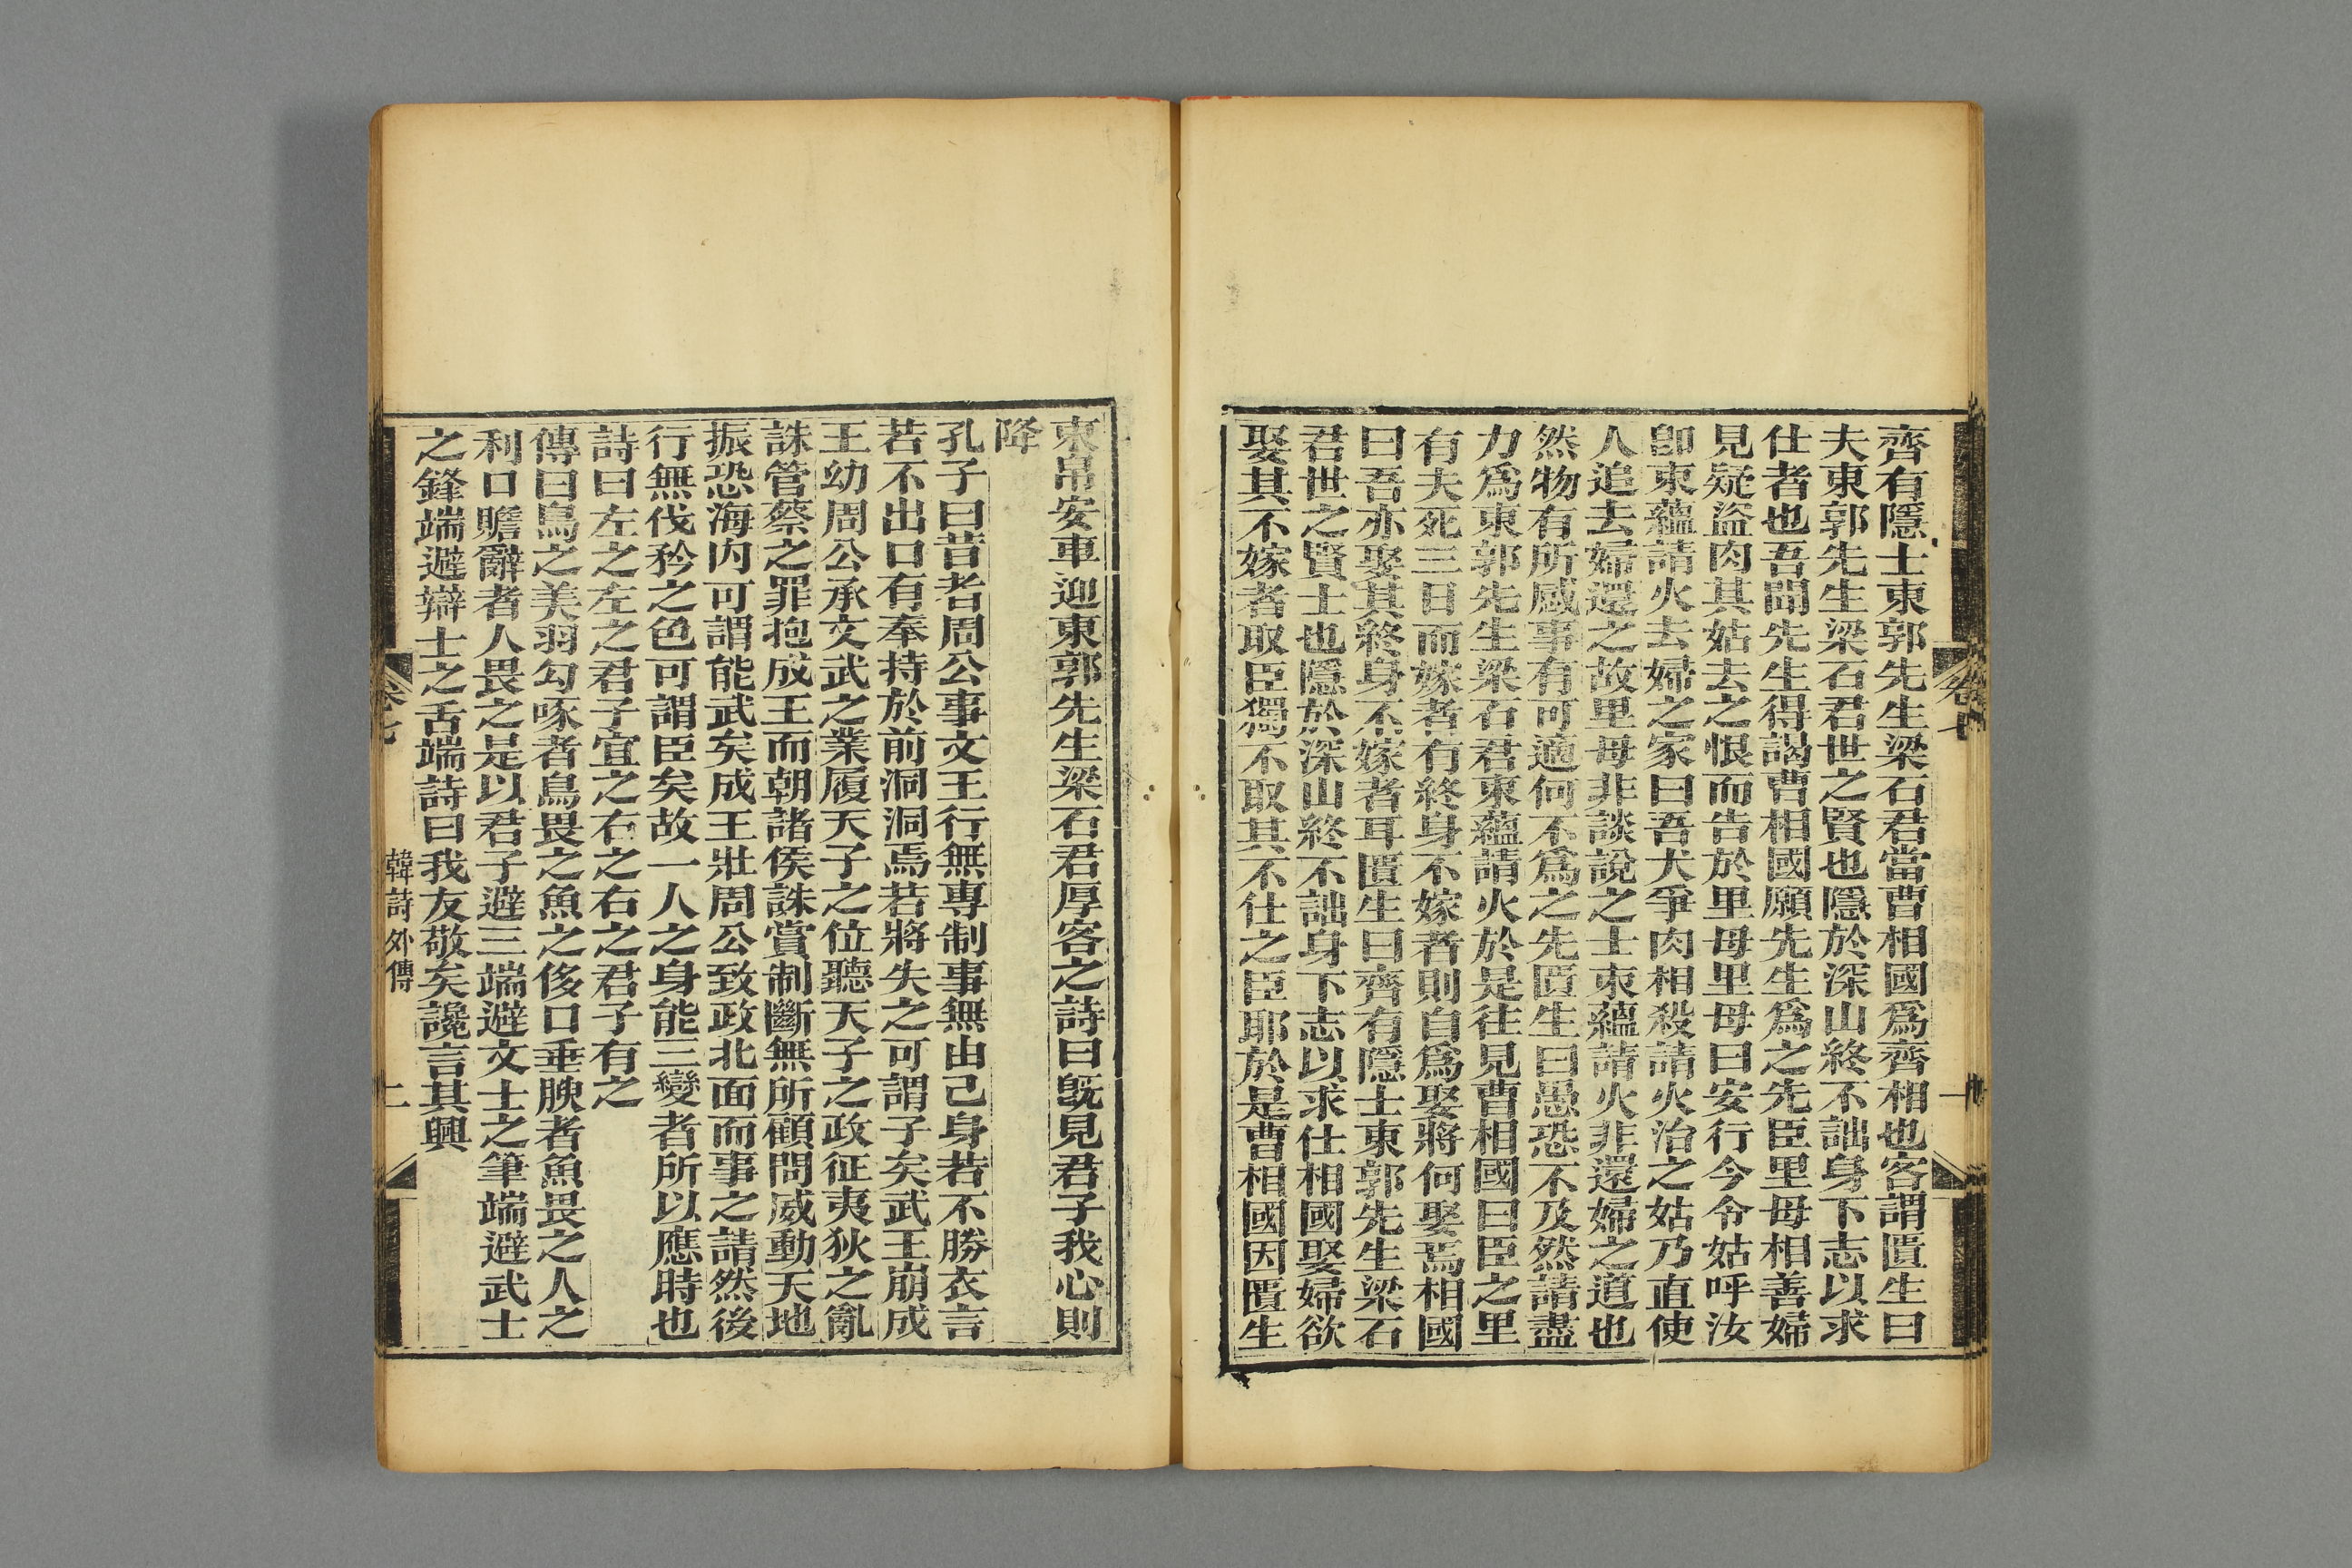 齊有隱士東郭先生梁石君當曹相國爲齊相也客謂匱生曰
夫東郭先生梁石君世之賢也隱於深山終不詘身下志以求
仕者也吾聞先生得謁曹相國願先生爲之先臣里母相善婦
見疑盜肉其姑去之恨而告於里母里母曰安行今令姑呼汝
卽東蘊請火去婦之家曰吾犬爭肉相殺請火治之姑乃直使
人追去婦還之故里母非談說之士東蘊請火非還婦之道也
然物有所感事有可適何不爲之先匱生曰愚恐不及然請盡
力爲東郭先生梁石君東蘊請火於是往見曹相國曰臣之里
有夫死三日而嫁者有終身不嫁者則自爲娶將何娶焉相國
曰吾亦娶其終身不嫁者耳匱生曰齊有隱士東郭先生梁石
君世之賢士也隱於深山終不詘身下志以求仕相國娶婦欲
娶其不嫁者取臣獨不取其不仕之臣耶於是曹相國因匱生
東帛安車迎東郭先生梁石君厚客之詩曰旣見君子我心則
降
孔子曰昔者周公事文王行無專制事無由己身若不勝衣言
若不出口有奉持於前洞洞焉若將失之可謂子矣武王崩成
王幼周公承文武之業履天子之位聽天子之政征夷狄之亂
誅管蔡之罪抱成王而朝諸侯誅賞制斷無所顧問威動天地
振恐海內可謂能武矣成王壯周公致政北面而事之請然後
行無伐矜之色可謂臣矣故一人之身能三變者所以應時也
詩曰左之左之君子宜之右之右之君子有之
傳曰鳥之美羽勾啄者鳥畏之魚之侈口垂腴者魚畏之人之
利口贍辭者人畏之是以君子避三端避文士之筆端避武士
之鋒端避辯士之舌端詩曰我友敬矣讒言其興
卷七
韓詩外傳
二